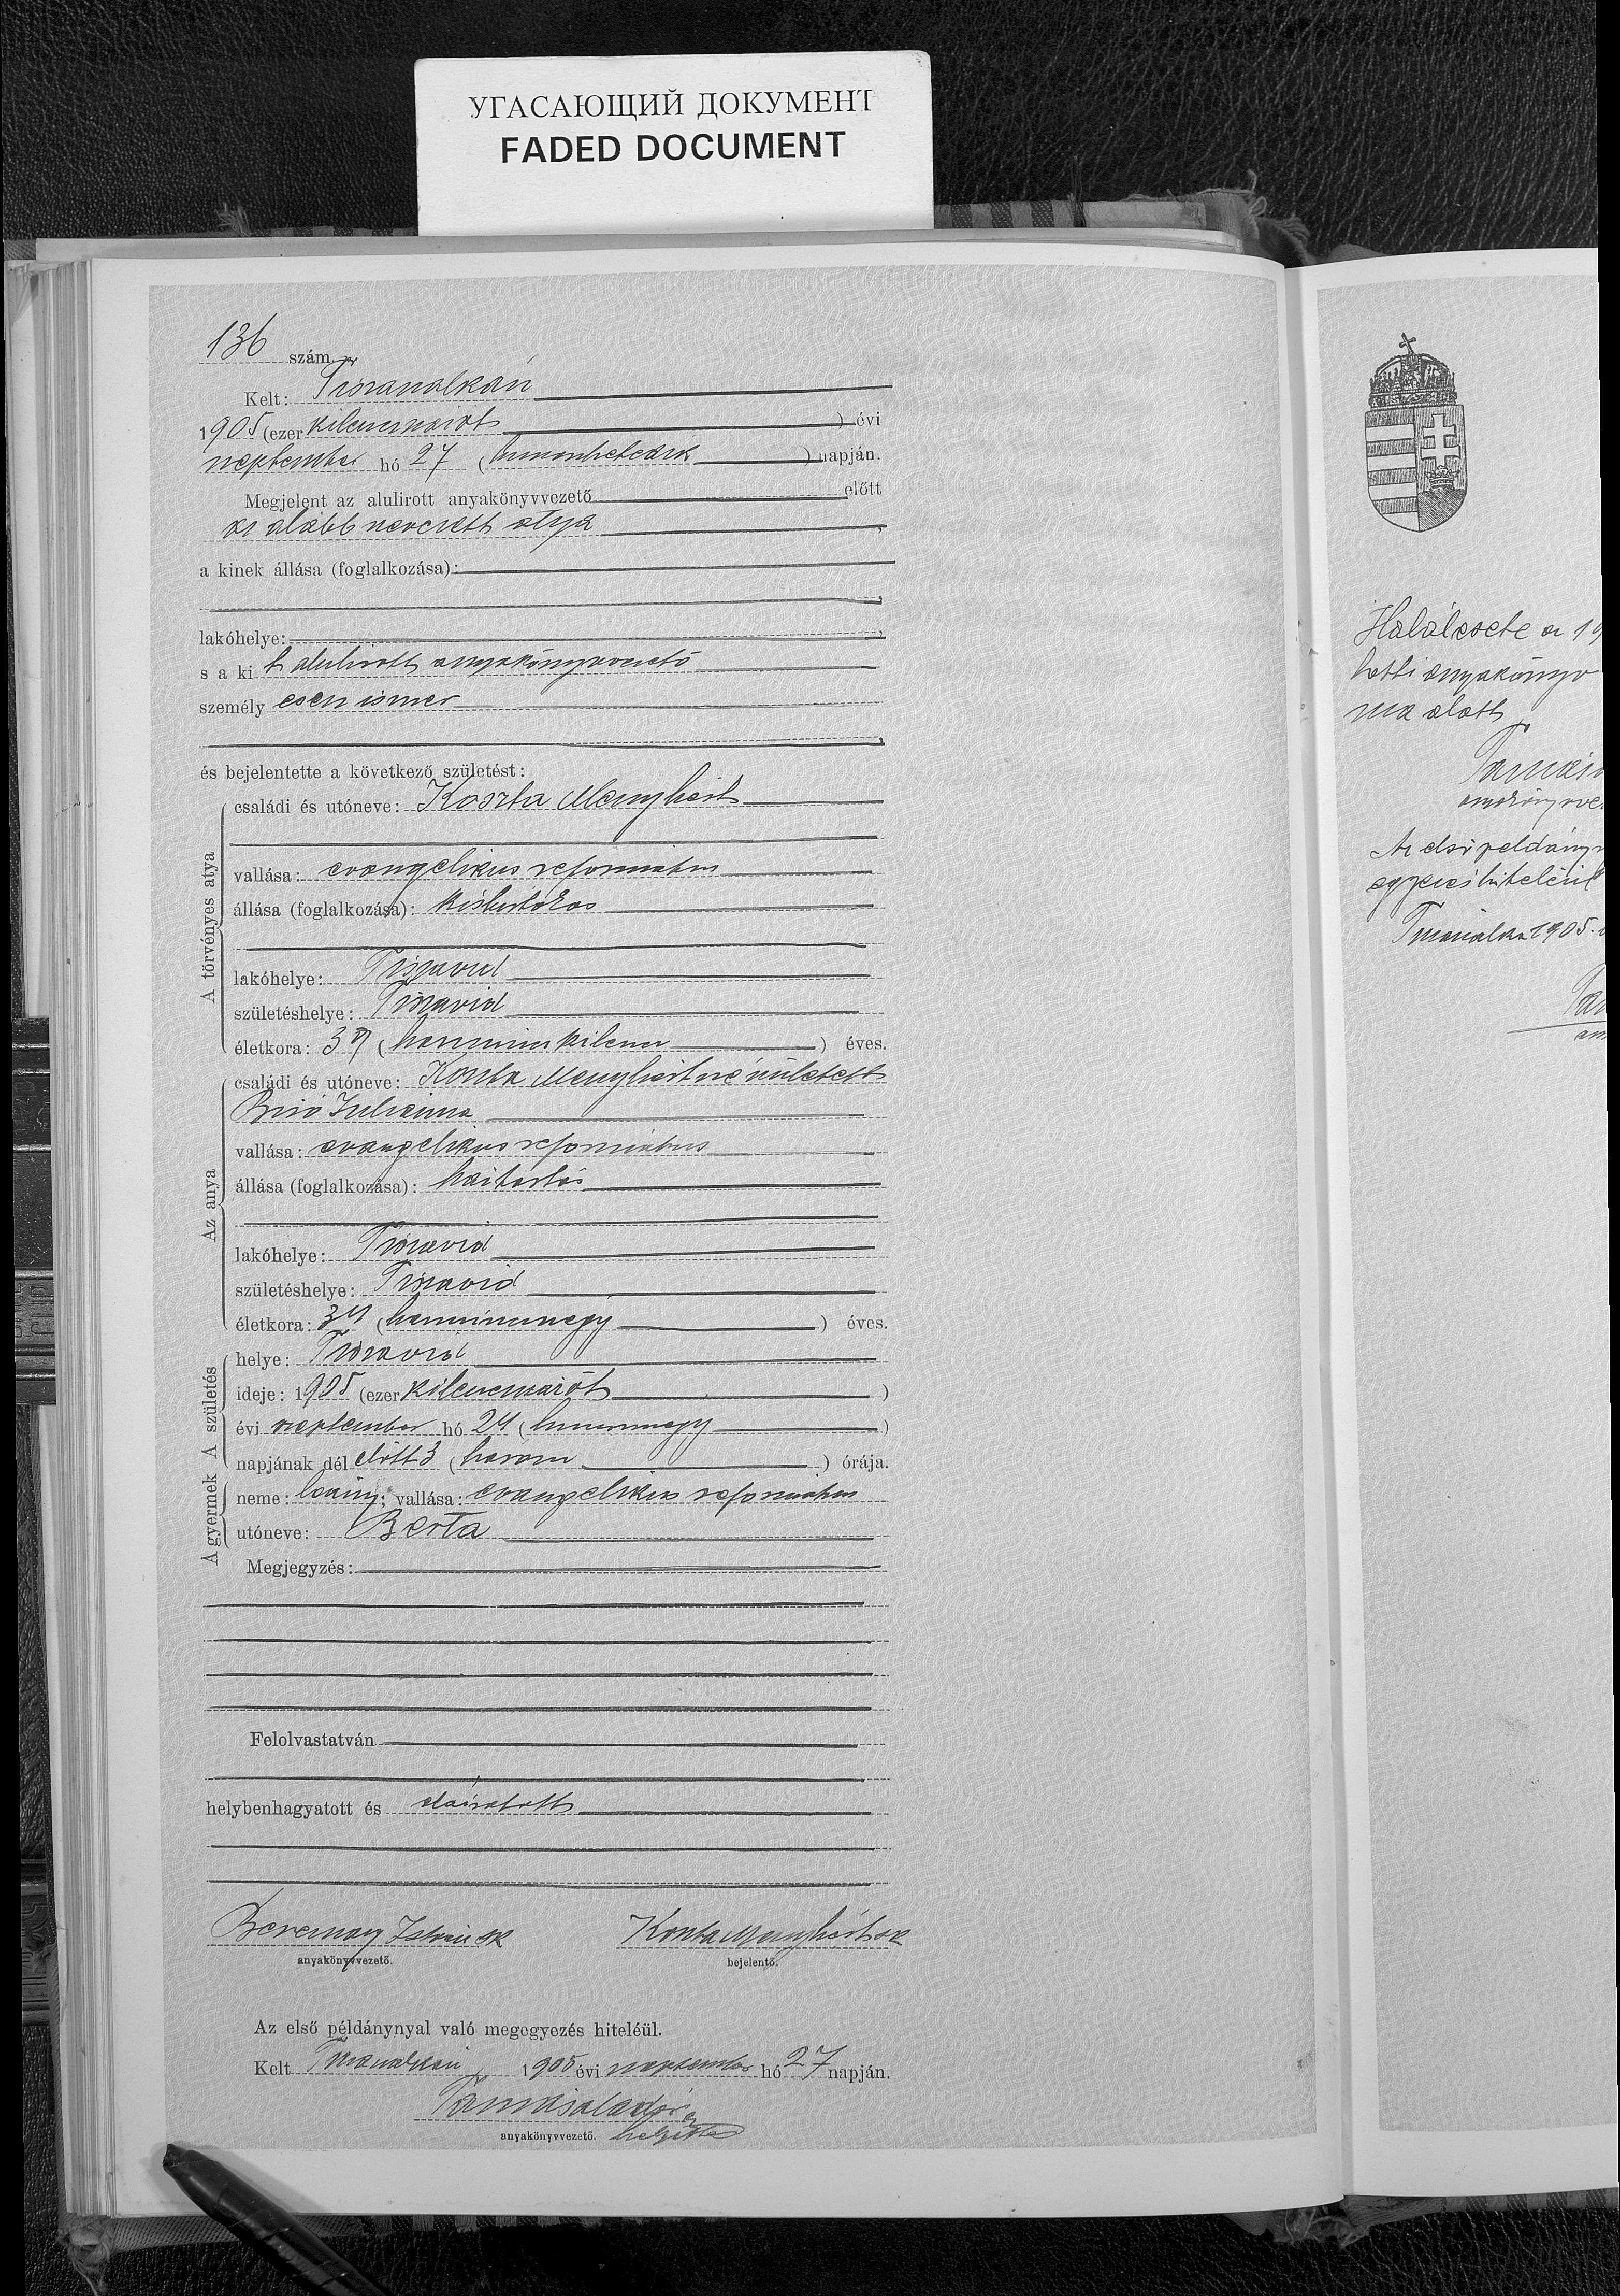 УГАСАЮЩИЙ ДОКУМЕНТ
FADED DOCUMENT
136 szám.
Kelt: Tiszasalkán
1905 (ezer kilencszázöt ) évi
szeptember hó 27 ( huszonhetedik ) napján.
Megjelent az alulirott anyakönyvvezető előtt
az alább nevezett atya
a kinek állása (foglalkozása):
lakóhelye:
s a ki t alulirott anyakönyvvezető
személy esen ismer
és bejelentette a következő születést:
A törvényes atya
családi és utóneve: Koszta Menyhért
vallása: evangelikus református
állása (foglalkozása): kisbirtokos
lakóhelye: Tiszavid
születéshelye: Tiszavid
életkora: 39 ( harminckilenc ) éves.
Az anya
családi és utóneve: Koszta Menyhértné született
Biró Juliánna
vallása: evangelikus református
állása (foglalkozása): háztartás
lakóhelye: Tiszavid
születéshelye: Tiszavid
életkora: 34 ( harmincnegy ) éves.
A születés
helye: Tiszavid
ideje: 1905 (ezer kilencszázöt )
évi szeptember hó 24 ( huszonnegy )
napjának dél előtt 3 ( három ) órája.
A gyermek
neme: leány; vallása: evangelikus református
utóneve: Berta
Megjegyzés:
Felolvastatván
helybenhagyatott és aláiratott
István sk Koszta Menyhért sk
anyakönyvvezető. bejelentő.
Az első példánynyal való megegyezés hiteléül.
Kelt 1905 évi szeptember hó 27 napján.
anyakönyvvezető. helyettes
Halálesete a 19
beli anyakönyv
ma alatt
Az első példány
egyezés hiteléül
1905.